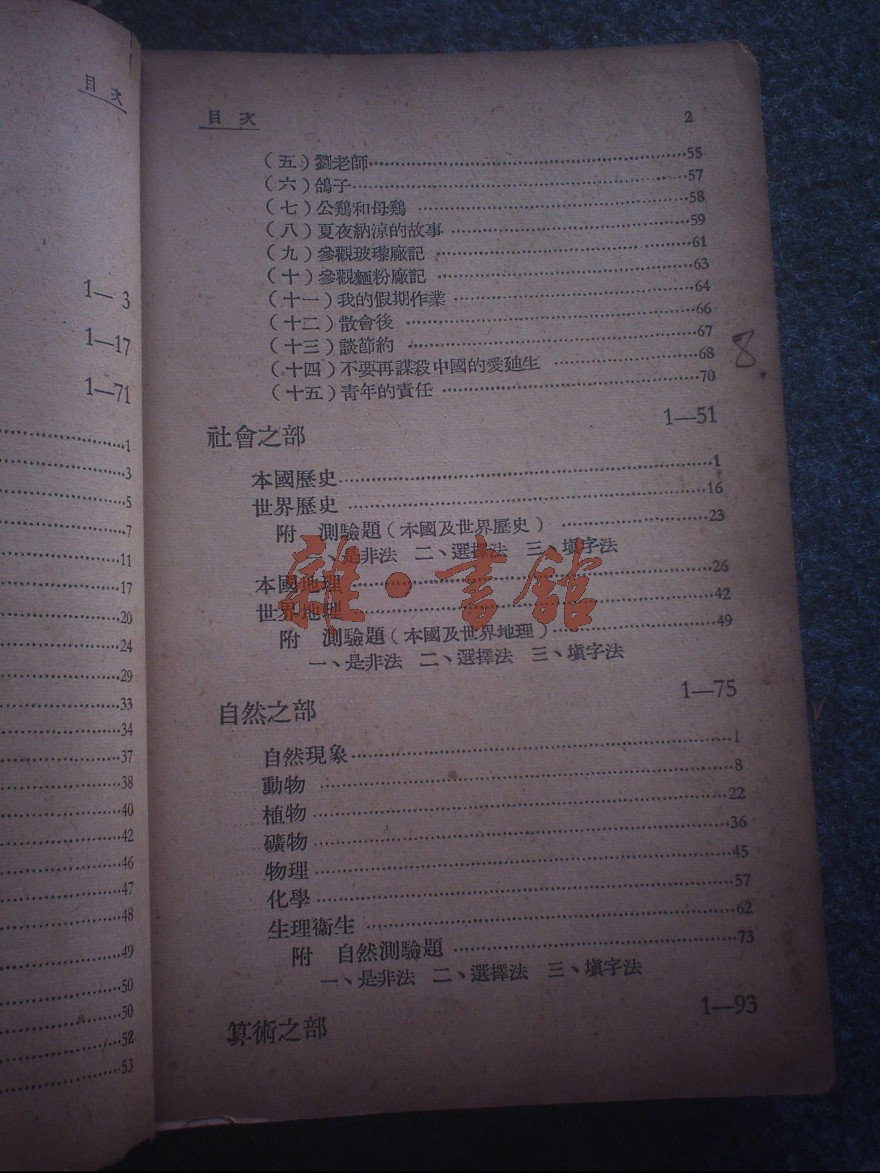 目次
1— 3
1—17
1—71
1
3
5
7
11
17
20
24
29
33
34
37
38
40
42
46
47
48
49
50
50
52
53
目次 2
（五）劉老師 55
（六）鴿子 57
（七）公鷄和母鷄 58
（八）夏夜納涼的故事 59
（九）參觀玻瓈廠記 61
（十）參觀麵粉廠記 63
（十一）我的假期作業 64
（十二）散會後 66
（十三）談節約 67
（十四）不要再謀殺中國的愛廸生 68
（十五）靑年的責任 70
8.
社會之部 1—51
本國歷史 1
世界歷史 16
附 測驗題（本國及世界歷史） 23
一、是非法 二、選擇法 三、塡字法
本國地理 26
世界地理 42
附 測驗題（本國及世界地理） 49
一、是非法 二、選擇法 三、塡字法
雜·書館
自然之部 1—75
自然現象 1
動物 8
植物 22
礦物 36
物理 45
化學 57
生理衞生 62
附 自然測驗題 73
一、是非法 二、選擇法 三、塡字法
算術之部 1—93